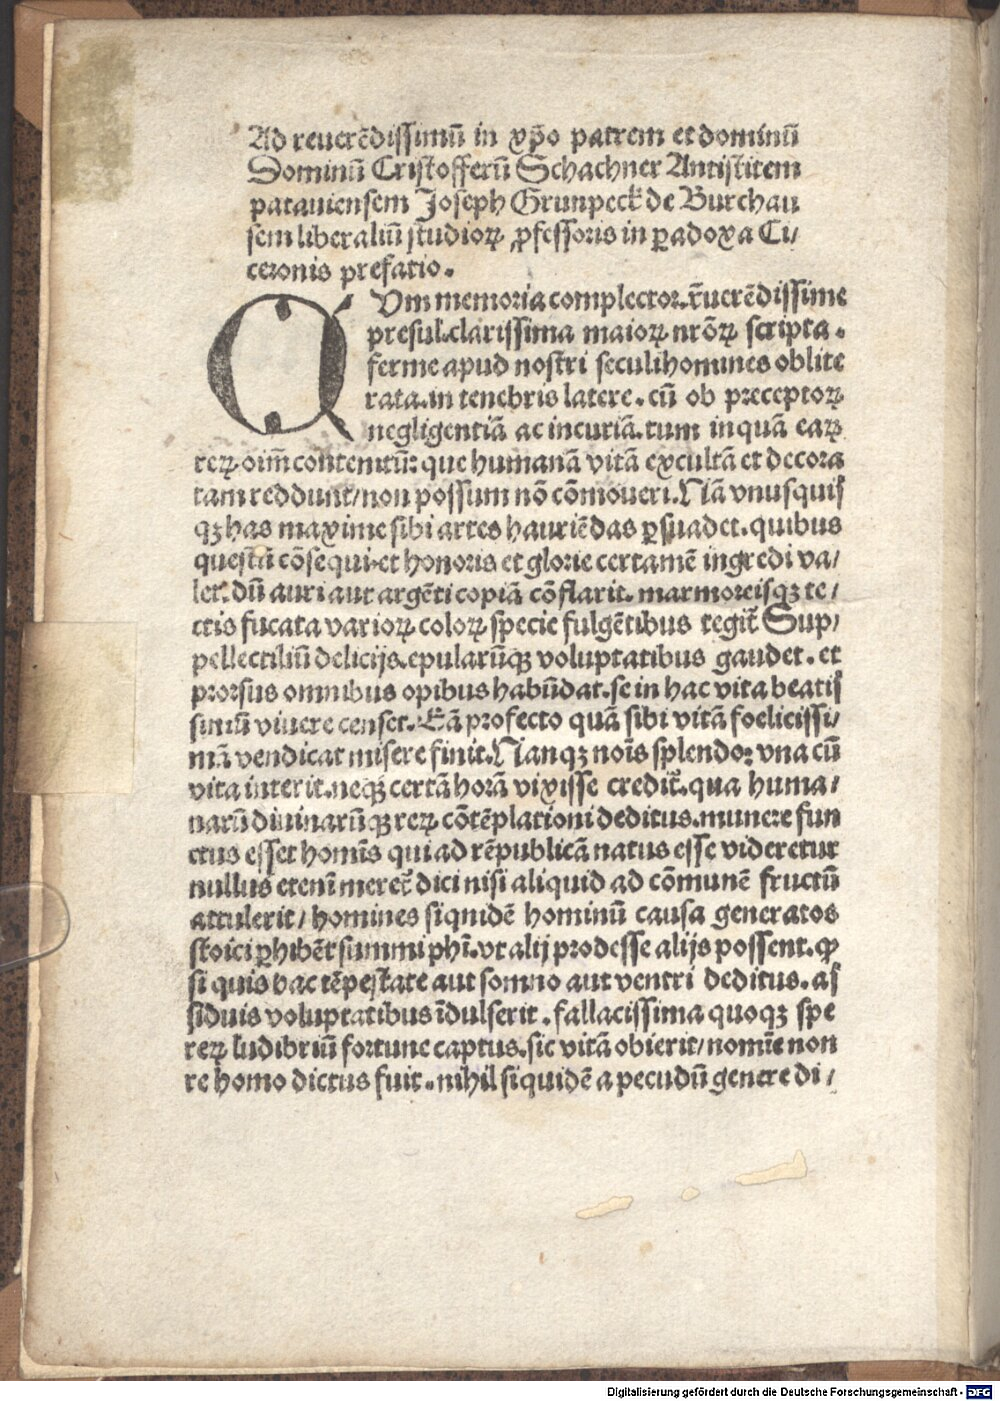 Ad reuerēdissimū in xp̄o patrem et dominū
Dominū Cristofferū Schachner Antistitem
patauiensem Joseph Grunpeck de Burchau
sem liberaliū studioꝝ ꝓfessoris in ꝑadoxa Ci/
ceronis prefatio.
QVm memoria complector.r̄uerēdissime
presul.clarissima maioꝝ nrōꝝ scripta.
ferme apud nostri seculi homines oblite
rata.in tenebris latere.cū ob preceptoꝝ
negligentiā ac incuriā.tum inquā eaꝝ
reꝝ oim̄ contemtū: que humanā vitā excultā et decora
tam reddunt/non possum nō cōmoueri.Nā vnusquis
qꝫ has maxime sibi artes hauriēdas ꝑsuadet.quibus
questū cōsequi.et honoris et glorie certamē ingredi va/
let.dū auri aut argēti copiā cōflarit.marmoreisqꝫ te/
ctis fucata varioꝝ coloꝝ specie fulgētibus tegit̄ Sup/
pellectiliū delicijs.epularūqꝫ voluptatibus gaudet.et
prorsus omnibus opibus habūdat.se in hac vita beatis
simū viuere censet.Eā profecto quā sibi vitā foelicissi/
mā vendicat misere finit.Nanqꝫ nois̄ splendor vna cū
vita interit.neqꝫ certā horā vixisse credit̄.qua huma/
narū diuinarūqꝫ reꝝ cōtēplationi deditus.munere fun
ctus esset homīs qui ad rēpublicā natus esse videretur
nullus etenī meret̄ dici nisi aliquid ad cōmunē fructū
attulerit/homines siquidē hominū causa generatos
stoici ꝑhibēt summi phī.vt alij prodesse alijs possent.ꝙ
si quis hac tēpestate aut somno aut ventri deditus.as
siduis voluptatibus īdulserit.fallacissima quoqꝫ spe
reꝝ ludibriū fortune captus.sic vitā obierit/nomīe non
re homo dictus fuit.nihil siquidē a pecudū genere di/
Digitalisierung gefördert durch die Deutsche Forschungsgemeinschaft - DFG